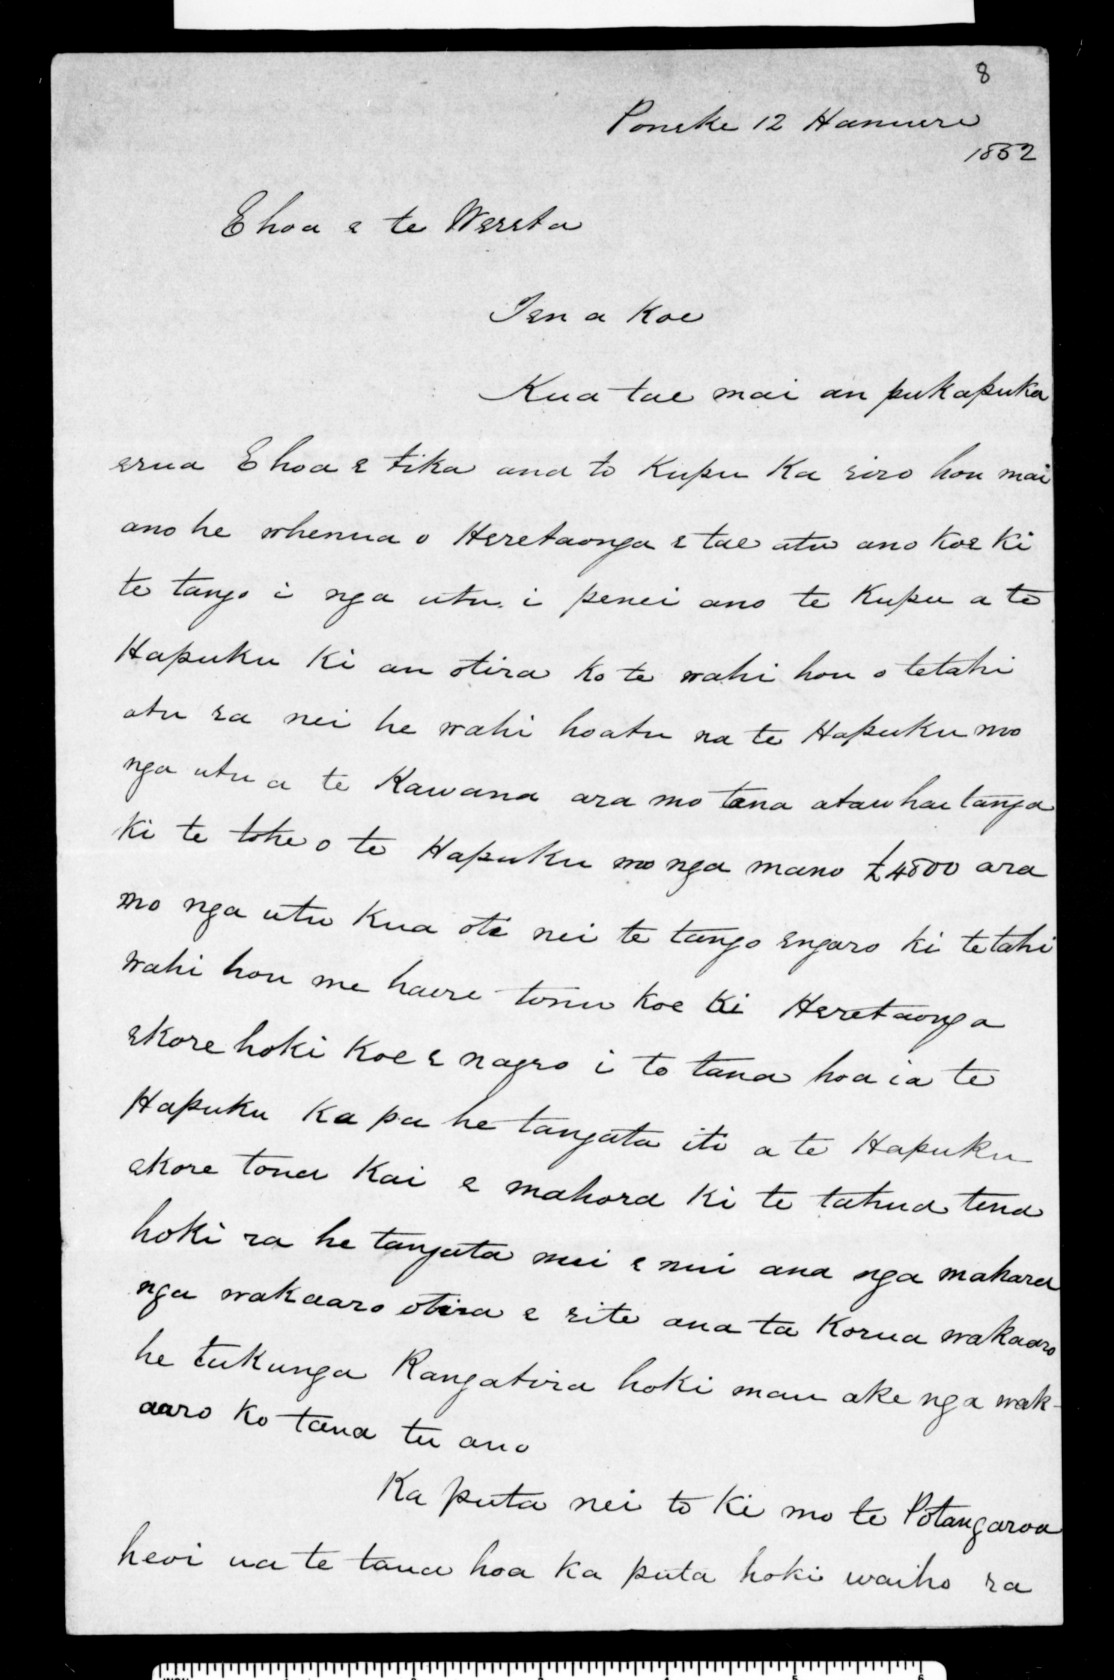 8
Poneke 12 Hanuere
1852
E hoa e te Wereta
Tena Koe
Kua tae mai au pukapuka
erua E hoa e tika ana to Kupu Ka riro hou mai
ano he whenua o Heretaonga e tae atu ano Koe Ki
te tango i nga utu. i penei ano te Kupu a te
Hapuku Ki au otira Ko te wahi hou o tetahi
atu ra nei he wahi hoatu na te Hapuku mo
nga utu a te Kawana ara mo tana atawhaetanga
Ki te tohe o te Hapuku mo nga mano £4800 ara
mo nga utu Kua oti nei te tango engaro ki tetahi
wahi hou me haere tonu Koe Ki Heretaonga
ekore hoki Koe e ngaro i to tana hoa ia te
Hapuku Ka pa he tangata iti a te Hapuku
ekore tona Kai e mahora Ki te tahua tena
hoki ra he tangata nui e nui ana nga mahara
nga wakaaro otira e rite ana ta Korua wakaaro
he tukunga Rangatira hoki mau ake nga wak-
aaro Ko tana tu ano
Ka puta nei to Ki mo te Potangaroa
heoi na te tana hoa Ka puta hoki waiho ra